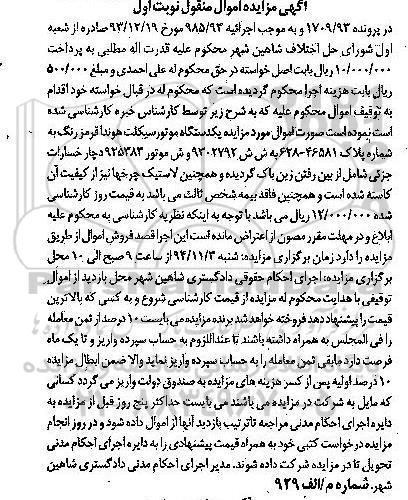 آگهی مزایده اموال منقول نوبت اول
در پرونده ۱۷۰۹/۹۳ و به موجب اجرائیه ۹۸۵/۹۳ مورخ ۹۳/۱۲/۱۹ صادره از شعبه
اول شورای حل اختلاف شاهین شهر محکوم علیه قدرت اله مطلبی به پرداخت
۱۰/۰۰۰/۰۰۰ ریال بابت اصل خواسته در حق محکوم له علی احمدی و مبلغ ۵۰۰/۰۰۰
ریال بابت هزینه اجرا محکوم گردیده است که محکوم له در قبال خواسته خود اقدام
به توقیف اموال محکوم علیه که به شرح زیر توسط کارشناس خبره کارشناسی شده
است نموده است صورت اموال مورد مزایده یکدستگاه موتورسیکلت هوندا قرمز رنگ به
شماره پلاک ۴۶۵۸۱-۶۲۸ به ش ش ۹۳۰۲۷۹۲ و ش موتور ۹۲۵۳۸۳ دچار خسارات
جزئی شامل از بین رفتن زین باک گردیده و همچنین لاستیک چرخها نیز از کیفیت آن
کاسته شده است و همچنین فاقد بیمه شخص ثالث می باشد به قیمت روز کارشناسی
شده ۱۲/۰۰۰/۰۰۰ ریال می باشد با توجه به اینکه نظریه کارشناسی به محکوم علیه
ابلاغ و در مهلت مقرر مصون از اعتراض مانده است این اجرا قصد فروش اموال از طریق
مزایده را دارد زمان برگزاری مزایده: شنبه ۹۴/۱۱/۳ از ساعت ۹ صبح الی ۱۰ محل
برگزاری مزایده: اجرای احکام حقوقی دادگستری شاهین شهر محل بازدید از اموال
توقیفی با هدایت محکوم له مزایده از قیمت کارشناسی شروع و به کسی که بالاترین
قیمت را پیشنهاد دهد فروخته خواهد شد برنده مزایده می بایست ۱۰ درصد از ثمن معامله
را فی المجلس به همراه داشته باشند تا عنداللزوم به حساب سپرده واریز و تا یک ماه
فرصت دارد مابقی ثمن معامله را به حساب سپرده واریز نماید والا ضمن ابطال مزایده
۱۰ درصد اولیه پس از کسر هزینه های مزایده به صندوق دولت واریز می گردد کسانی
که مایل به شرکت در مزایده می باشند می بایست حداکثر پنج روز قبل از مزایده به
دایره اجرای احکام مدنی مراجعه تا ترتیب بازدید آنها از اموال داده شود و در روز انجام
مزایده درخواست کتبی خود به همراه قیمت پیشنهادی را به دایره اجرای احکام مدنی
تحویل تا در مزایده شرکت داده شوند. مدیر اجرای احکام مدنی دادگستری شاهین
شهر. شماره م/الف ۹۲۹